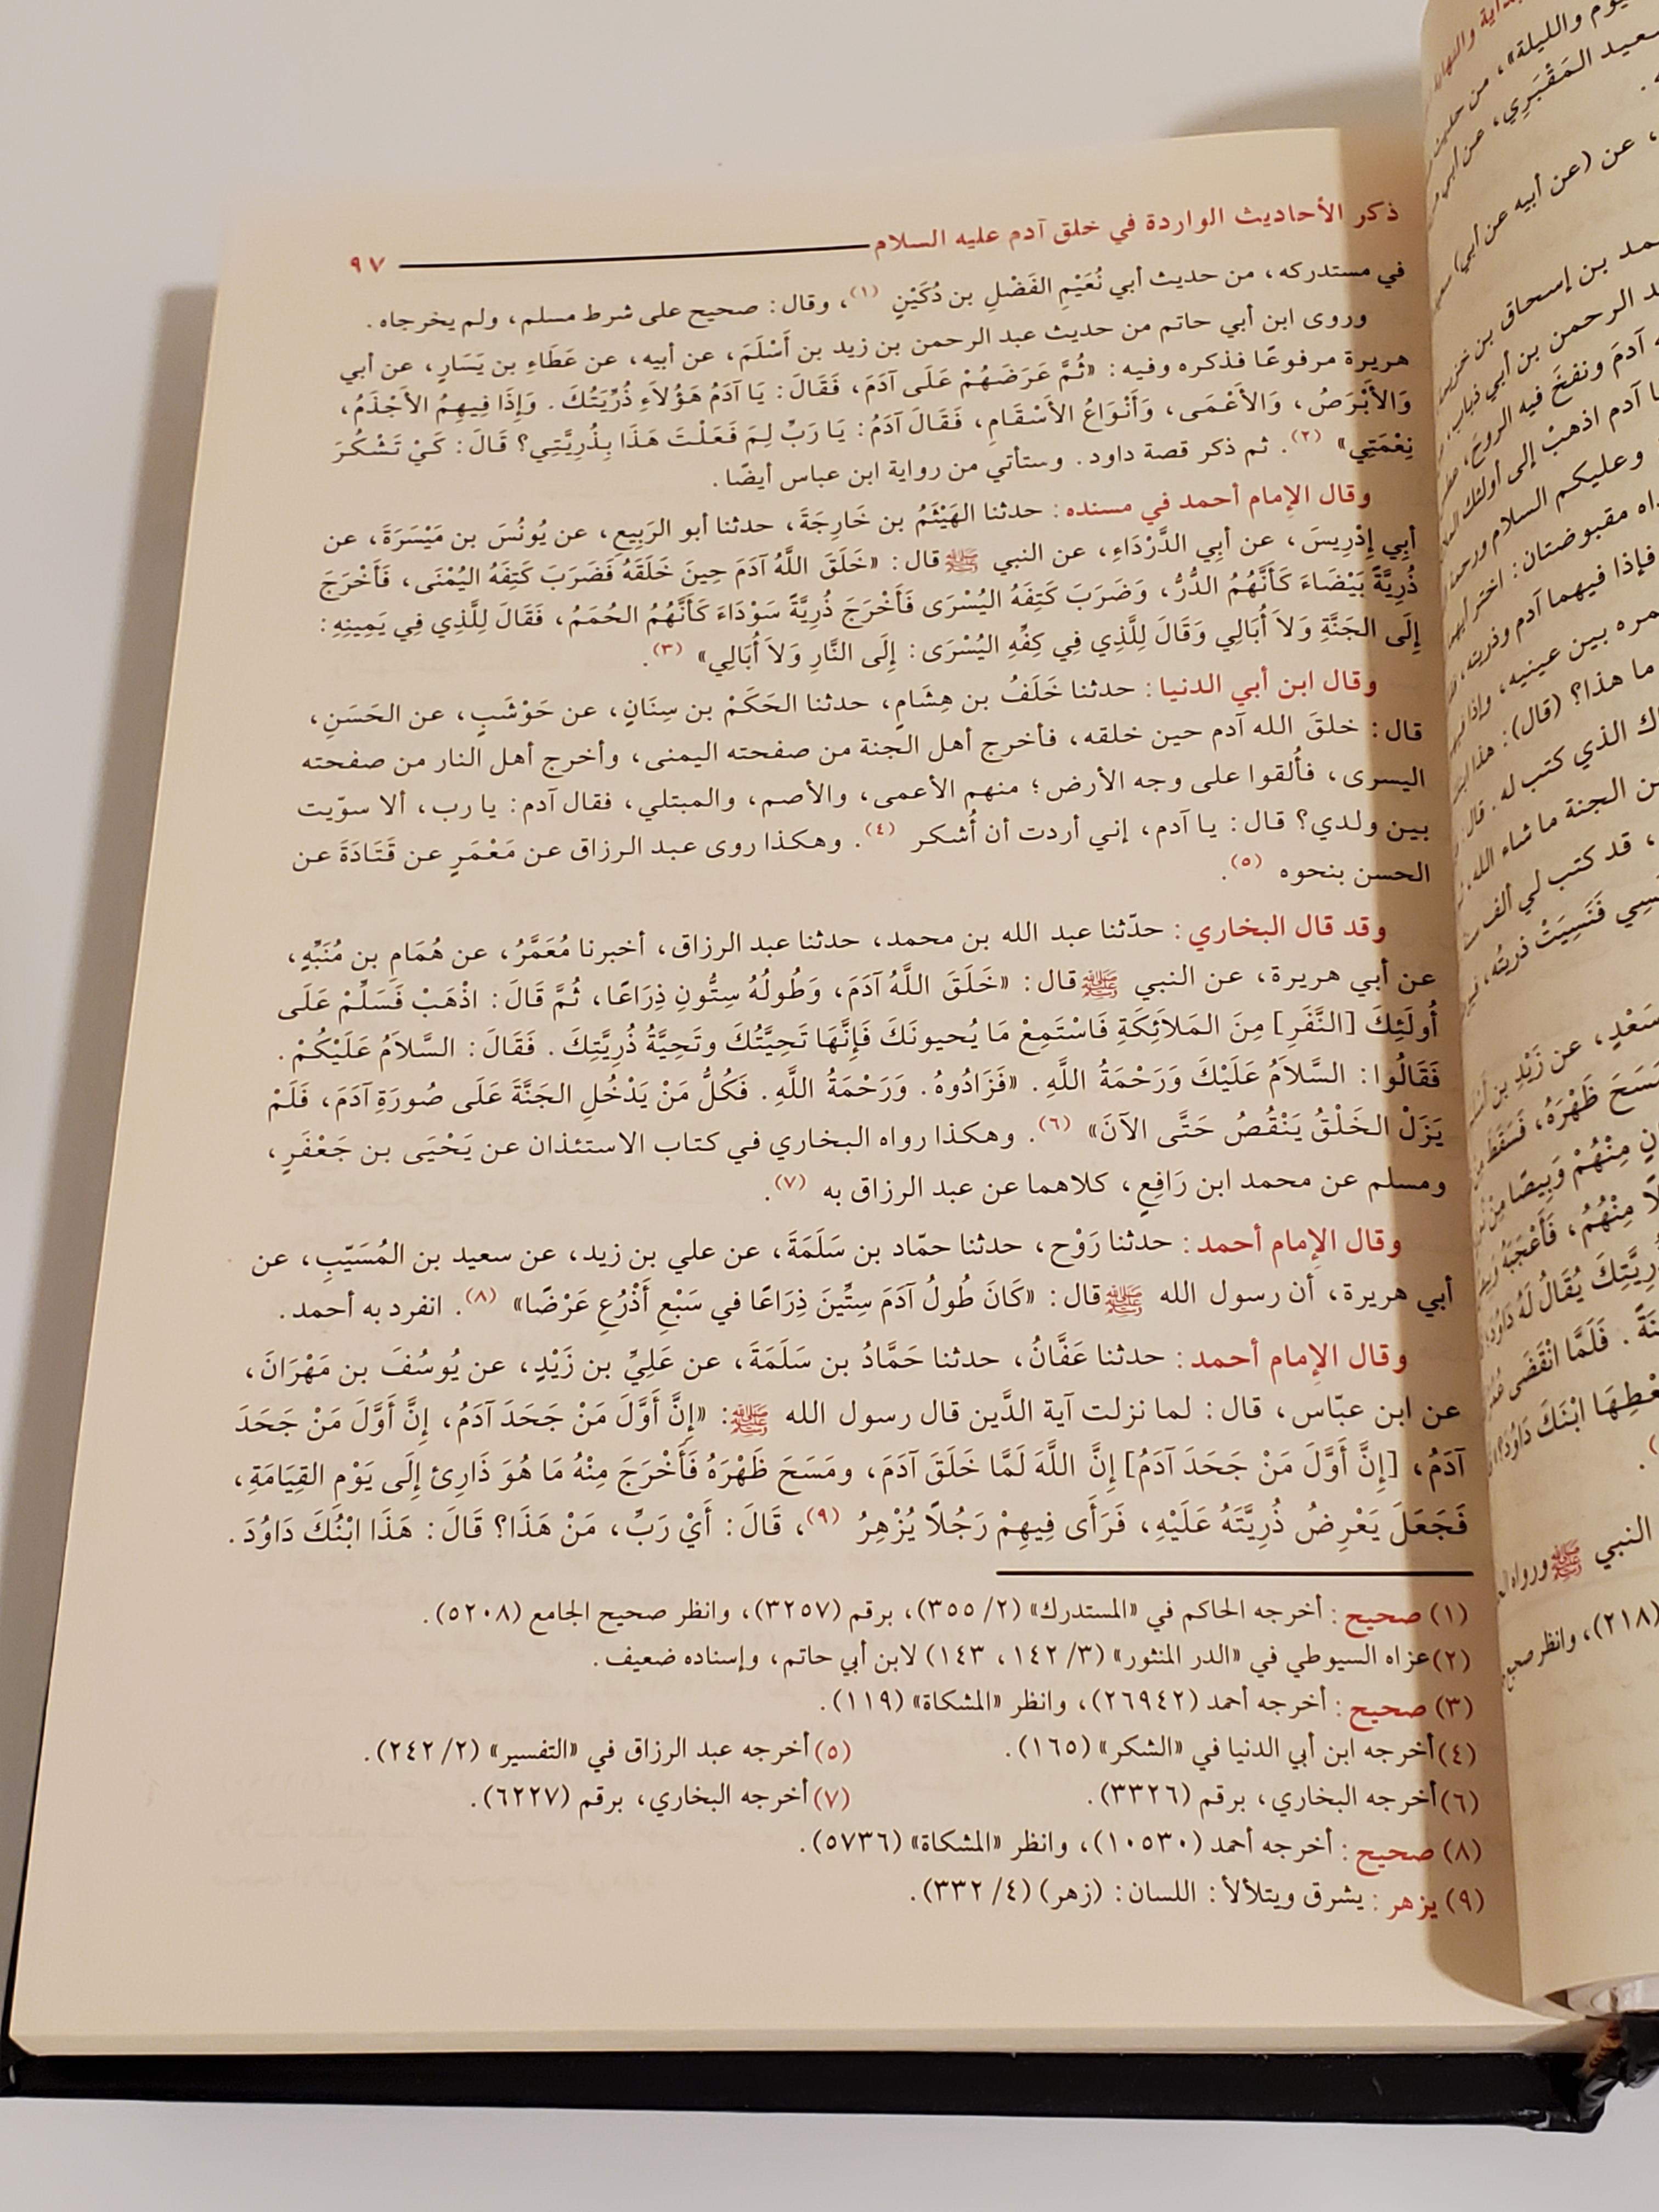 ذكر الأحاديث الواردة في خلق آدم عليه السلام ٩٧
في مستدركه، من حديث أبي نُعَيْمِ الفَضْلِ بن دُكَيْنٍ (١)، وقال: صحيح على شرط مسلم، ولم يخرجاه.
وروى ابن أبي حاتم من حديث عبد الرحمن بن زيد بن أَسْلَمَ، عن أبيه، عن عَطَاءِ بن يَسَارٍ، عن أبي
هريرة مرفوعًا فذكره وفيه: «ثُمَّ عَرَضَهُمْ عَلَى آدَمَ، فَقَالَ: يَا آدَمُ هَؤُلاَءِ ذُرِّيَّتُكَ. وَإِذَا فِيهِمُ الأَجْذَمُ،
وَالأَبْرَصُ، وَالأَعْمَى، وَأَنْوَاعُ الأَسْقَامِ، فَقَالَ آدَمُ: يَا رَبِّ لِمَ فَعَلْتَ هَذَا بِذُرِيَّتِي؟ قَالَ: كَيْ تَشْكُرَ
نِعْمَتِي» (٢). ثم ذكر قصة داود. وستأتي من رواية ابن عباس أيضًا.
وقال الإمام أحمد في مسنده: حدثنا الهَيْثَمُ بن خَارِجَةَ، حدثنا أبو الرَبِيعِ، عن يُونُسَ بن مَيْسَرَةَ، عن
أبِي إِدْرِيسَ، عن أبِي الدَّرْدَاءِ، عن النبي ﷺ قال: «خَلَقَ اللَّهُ آدَمَ حِينَ خَلَقَهُ فَضَرَبَ كَتِفَهُ اليُمْنَى، فَأَخْرَجَ
ذُرِيَّةً بَيْضَاءَ كَأَنَّهُمُ الدُّرُّ، وَضَرَبَ كَتِفَهُ اليُسْرَى فَأَخْرَجَ ذُرِيَّةً سَوْدَاءَ كَأَنَّهُمُ الحُمَمُ، فَقَالَ لِلَّذِي فِي يَمِينِهِ:
إِلَى الجَنَّةِ وَلاَ أُبَالِي وَقَالَ لِلَّذِي فِي كِفِّهِ اليُسْرَى: إِلَى النَّارِ وَلاَ أُبَالِي» (٣).
وقال ابن أبي الدنيا: حدثنا خَلَفُ بن هِشَامٍ، حدثنا الحَكَمْ بن سِنَانٍ، عن حَوْشَبٍ، عن الحَسَنِ،
قال: خلقَ الله آدم حين خلقه، فأخرج أهل الجنة من صفحته اليمنى، وأخرج أهل النار من صفحته
اليسرى، فأُلقوا على وجه الأرض؛ منهم الأعمى، والأصم، والمبتلي، فقال آدم: يا رب، ألا سوّيت
بين ولدي؟ قال: يا آدم، إني أردت أن أُشكر (٤). وهكذا روى عبد الرزاق عن مَعْمَرٍ عن قَتَادَةَ عن
الحسن بنحوه (٥).
وقد قال البخاري: حدّثنا عبد الله بن محمد، حدثنا عبد الرزاق، أخبرنا مُعَمَّرُ، عن هُمَامِ بن مُنَبِّهٍ،
عن أبي هريرة، عن النبي ﷺ قال: «خَلَقَ اللَّهُ آدَمَ، وَطُولُهُ سِتُّونِ ذِرَاعًا، ثُمَّ قَالَ: اذْهَبْ فَسَلِّمْ عَلَى
أُولَئِكَ [النَّفَرِ] مِنَ المَلاَئِكَةِ فَاسْتَمِعْ مَا يُحيونَكَ فَإِنَّهَا تَحِيَّتُكَ وتَحِيَّةُ ذُرِيَّتِكَ. فَقَالَ: السَّلاَمُ عَلَيْكُمْ.
فَقَالُوا: السَّلاَمُ عَلَيْكَ وَرَحْمَةُ اللَّهِ. «فَزَادُوهُ. وَرَحْمَةُ اللَّهِ. فَكُلُّ مَنْ يَدْخُلِ الجَنَّةَ عَلَى صُورَةِ آدَمَ، فَلَمْ
يَزَلْ الخَلْقُ يَنْقُصُ حَتَّى الآنَ» (٦). وهكذا رواه البخاري في كتاب الاستئذان عن يَحْيَى بن جَعْفَرٍ،
ومسلم عن محمد ابن رَافِعٍ، كلاهما عن عبد الرزاق به (٧).
وقال الإمام أحمد: حدثنا رَوْح، حدثنا حمّاد بن سَلَمَةَ، عن علي بن زيد، عن سعيد بن المُسَيّبِ، عن
أبي هريرة، أن رسول الله ﷺ قال: «كَانَ طُولُ آدَمَ سِتِّينَ ذِرَاعًا في سَبْعِ أَذْرُعِ عَرْضًا» (٨). انفرد به أحمد.
وقال الإمام أحمد: حدثنا عَفَّانُ، حدثنا حَمَّادُ بن سَلَمَةَ، عن عَلِيِّ بن زَيْدٍ، عن يُوسُفَ بن مَهْرَانَ،
عن ابن عبّاس، قال: لما نزلت آية الدَّين قال رسول الله ﷺ: «إِنَّ أَوَّلَ مَنْ جَحَدَ آدَمُ، إِنَّ أَوَّلَ مَنْ جَحَدَ
آدَمُ، [إِنَّ أَوَّلَ مَنْ جَحَدَ آدَمُ] إِنَّ اللَّهَ لَمَّا خَلَقَ آدَمَ، ومَسَحَ ظَهْرَهُ فَأَخْرَجَ مِنْهُ مَا هُوَ ذَارِئ إِلَى يَوْمِ القِيَامَةِ،
فَجَعَلَ يَعْرِضُ ذُرِيَّتَهُ عَلَيْهِ، فَرَأَى فِيهِمْ رَجُلاً يُزْهِرُ (٩)، قَالَ: أَيْ رَبِّ، مَنْ هَذَا؟ قَالَ: هَذَا ابْنُكَ دَاوُدَ.
(١) صحيح: أخرجه الحاكم في «المستدرك» (٢/ ٣٥٥)، برقم (٣٢٥٧)، وانظر صحيح الجامع (٥٢٠٨).
(٢) عزاه السيوطي في «الدر المنثور» (٣/ ١٤٢، ١٤٣) لابن أبي حاتم، وإسناده ضعيف.
(٣) صحيح: أخرجه أحمد (٢٦٩٤٢)، وانظر «المشكاة» (١١٩).
(٤) أخرجه ابن أبي الدنيا في «الشكر» (١٦٥). (٥) أخرجه عبد الرزاق في «التفسير» (٢/ ٢٤٢).
(٦) أخرجه البخاري، برقم (٣٣٢٦). (٧) أخرجه البخاري، برقم (٦٢٢٧).
(٨) صحيح: أخرجه أحمد (١٠٥٣٠)، وانظر «المشكاة» (٥٧٣٦).
(٩) يزهر: يشرق ويتلألأ: اللسان: (زهر) (٤/ ٣٣٢).